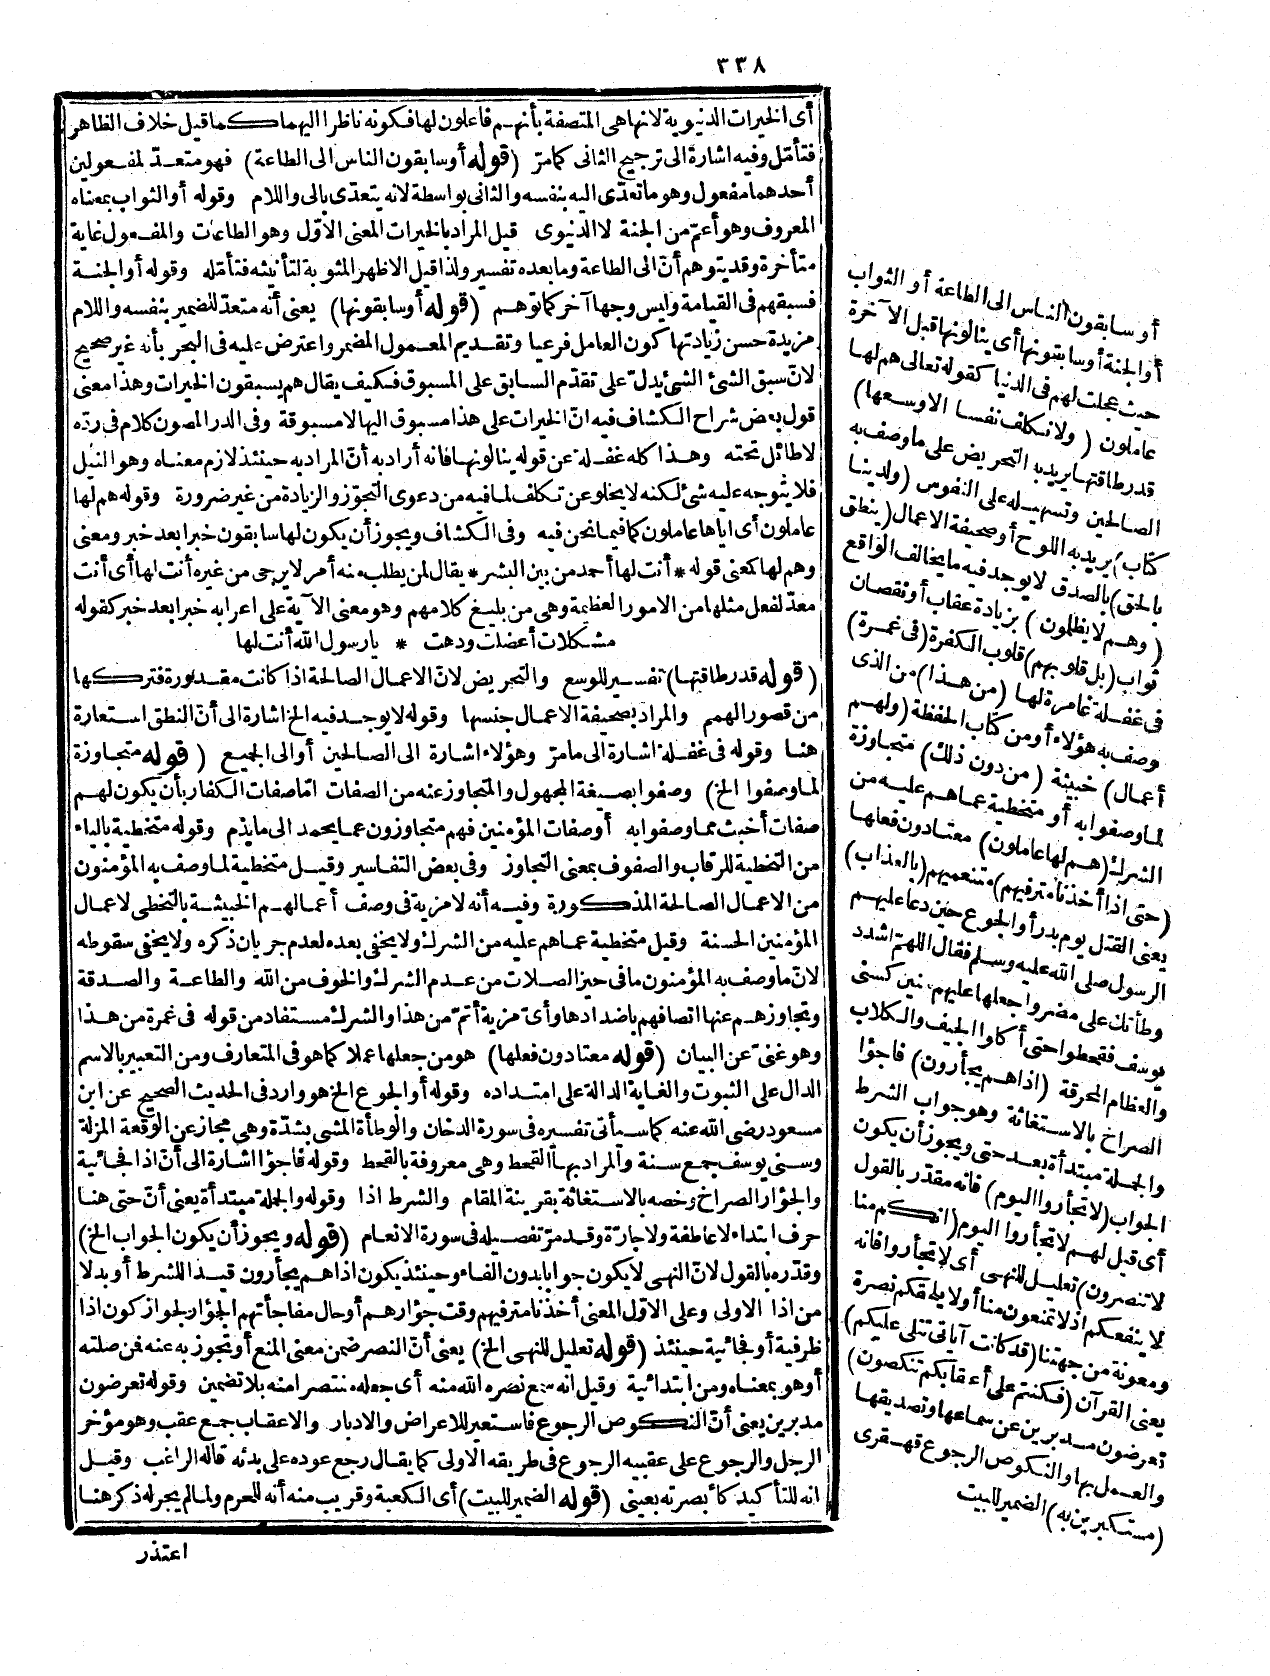 ٣٣٨
أى الخيرات الدنيوية لانها هى المتصفة بأنهم فاعلون لها فكونه ناظرا اليهما كما قيل خلاف الظاهر
فتأمّل وفيه اشارة الى ترجيح الثانى كما مرّ (قوله أو سابقون الناس الى الطاعة) فهو متعدّ لمفعولين
أحدهما مفعول وهو ما تعدّى اليه بنفسه والثانى بواسطة لانه يتعدّى بالى واللام وقوله أو الثواب بمعناه
المعروف وهو أعمّ من الجنة لا الدنيوى قيل المراد بالخيرات المعنى الاوّل وهو الطاعات والمفعول غاية
متأخرة وقد يتوهم أنّ الى الطاعة وما بعده تفسير ولذا قيل الاظهر المثوبة لتأنيثه فتأمّله وقوله أو الجنة
فسبقهم فى القيامة وليس وجها آخر كما توهم (قوله أو سابقونها) يعنى أنه متعدّ للضمير بنفسه واللام
مزيدة حسن زيادتها كون العامل فرعيا وتقديم المعمول المضمر واعترض عليه فى البحر بأنه غير صحيح
لانّ سبق الشئ الشئ يدلّ على تقدّم السابق على المسبوق فكيف يقال هم يسبقون الخيرات وهذا معنى
قول بعض شراح الكشاف فيه انّ الخيرات على هذا مسبوق اليها لا مسبوقة وفى الدر المصون كلام فى ردّه
لا طائل تحته وهذا كله غفلة عن قوله ينالونها فانه أراد به أنّ المراد به حينئذ لازم معناه وهو النيل
فلا يتوجه عليه شئ لكنه لا يخلو عن تكلف لما فيه من دعوى التجوّز والزيادة من غير ضرورة وقوله هم لها
عاملون أى اياها عاملون كما فيما نحن فيه وفى الكشاف ويجوز أن يكون لها سابقون خبرا بعد خبر ومعنى
وهم لها كمعنى قوله * أنت لها أحمد من بين البشر * يقال لمن يطلب منه أمر لا يرجى من غيره أنت لها أى أنت
معدّ لفعل مثلها من الامور العظيمة وهى من بليغ كلامهم وهو معنى الآية على اعرابه خبرا بعد خبر كقوله
مشكلات أعضلت ودهت * يا رسول الله أنت لها
(قوله قدر طاقتها) تفسير للوسع والتحريض لانّ الاعمال الصالحة اذا كانت مقدورة فتركها
من قصور الهمم والمراد بصحيفة الاعمال جنسها وقوله لا يوجد فيه الخ اشارة الى أنّ النطق استعارة
هنا وقوله فى غفلة اشارة الى ما مرّ وهؤلاء اشارة الى الصالحين أو الى الجميع (قوله متجاوزة
لما وصفوا الخ) وصفوا بصيغة المجهول والمتجاوز عنه من الصفات امّا صفات الكفار بأن يكون لهم
صفات أخبث مما وصفوا به أو صفات المؤمنين فهم متجاوزون عما يحمد الى ما يذم وقوله متخطية بالياء
من التخطية للرقاب والصفوف بمعنى التجاوز وفى بعض التفاسير وقيل متخطية لما وصف به المؤمنون
من الاعمال الصالحة المذكورة وفيه أنه لا مزية فى وصف أعمالهم الخبيثة بالتخطى لاعمال
المؤمنين الحسنة وقيل متخطية عما هم عليه من الشرك ولا يخفى بعده لعدم جريان ذكره ولا يخفى سقوطه
لانّ ما وصف به المؤمنون ما فى حيز الصلات من عدم الشرك والخوف من الله والطاعة والصدقة
وتجاوزهم عنها اتصافهم باضدادها وأىّ مزية أتمّ من هذا والشرك مستفاد من قوله فى غمرة من هذا
وهو غنىّ عن البيان (قوله معتادون فعلها) هو من جعلها عملا كما هو فى المتعارف ومن التعبير بالاسم
الدال على الثبوت والغاية الدالة على امتداده وقوله أو الجوع الخ هو وارد فى الحديث الصحيح عن ابن
مسعود رضى الله عنه كما سيأتى تفسيره فى سورة الدخان والوطأة المشى بشدّة وهى مجاز عن الوقعة المزلة
وسنى يوسف جمع سنة والمراد بها القحط وهى معروفة بالقحط وقوله فاجؤا اشارة الى أنّ اذا فجائية
والجؤار الصراخ وخصه بالاستغاثة بقرينة المقام والشرط اذا وقوله والجملة مبتدأة يعنى أنّ حتى هنا
حرف ابتداء لا عاطفة ولا جارّة وقد مرّ تفصيله فى سورة الانعام (قوله ويجوز أن يكون الجواب الخ)
وقدّره بالقول لانّ النهى لا يكون جوابا بدون الفاء وحينئذ يكون اذا هم يجأرون قيدا للشرط أو بدلا
من اذا الاولى وعلى الاوّل المعنى أخذنا مترفيهم وقت جؤارهم أو حال مفاجأتهم الجؤار لجواز كون اذا
ظرفية أو فجائية حينئذ (قوله تعليل للنهى الخ) يعنى أنّ النصر ضمن معنى المنع أو تجوز به عنه فمن صلته
أو هو بمعناه ومن ابتدائية وقيل انه سمع نصره الله منه أى جعله منتصرا منه بلا تضمين وقوله تعرضون
مدبرين يعنى أنّ النكوص الرجوع فاستعير للاعراض والادبار والاعقاب جمع عقب وهو مؤخر
الرجل والرجوع على عقبيه الرجوع فى طريقه الاولى كما يقال رجع عوده على بدئه قاله الراغب وقيل
انه للتأكيد كأبصرته بعينى (قوله الضمير للبيت) أى الكعبة وقريب منه أنه للحرم ولما لم يجر له ذكر هنا
اعتذر
أو سابقون الناس الى الطاعة أو الثواب
أو الجنة أو سابقونها أى ينالونها قبل الآخرة
حيث عجلت لهم فى الدنيا كقوله تعالى هم لها
عاملون (ولا نكلف نفسا الا وسعها)
قدر طاقتها يريد به التحريض على ما وصف به
الصالحين وتسهيله على النفوس (ولدينا
كتاب) يريد به اللوح أو صحيفة الاعمال (ينطق
بالحق) بالصدق لا يوجد فيه ما يخالف الواقع
(وهم لا يظلمون) بزيادة عقاب أو نقصان
ثواب (بل قلوبهم) قلوب الكفرة (فى غمرة)
فى غفلة غامرة لها (من هذا) من الذى
وصف به هؤلاء أو من كتاب الحفظة (ولهم
أعمال) خبيثة (من دون ذلك) متجاوزة
لما وصفوا به أو متخطية عما هم عليه من
الشرك (هم لها عاملون) معتادون فعلها
(حتى اذا أخذنا مترفيهم) متنعميهم (بالعذاب)
يعنى القتل يوم بدر أو الجوع حين دعا عليهم
الرسول صلى الله عليه وسلم فقال اللهمّ اشدد
وطأتك على مضر واجعلها عليهم سنين كسنى
يوسف فقحطوا حتى أكلوا الجيف والكلاب
والعظام المحرقة (اذا هم يجأرون) فاجؤا
الصراخ بالاستغاثة وهو جواب الشرط
والجملة مبتدأة بعد حتى ويجوز أن يكون
الجواب (لا تجأروا اليوم) فانه مقدّر بالقول
أى قيل لهم لا تجأروا اليوم (انكم منا
لا تنصرون) تعليل للنهى أى لا تجأروا فانه
لا ينفعكم اذ لا تمنعون منا أو لا يلحقكم نصرة
ومعونة من جهتنا (قد كانت آياتى تتلى عليكم)
يعنى القرآن (فكنتم على أعقابكم تنكصون)
تعرضون مدبرين عن سماعها وتصديقها
والعمل بها والنكوص الرجوع قهقرى
(مستكبرين به) الضمير للبيت